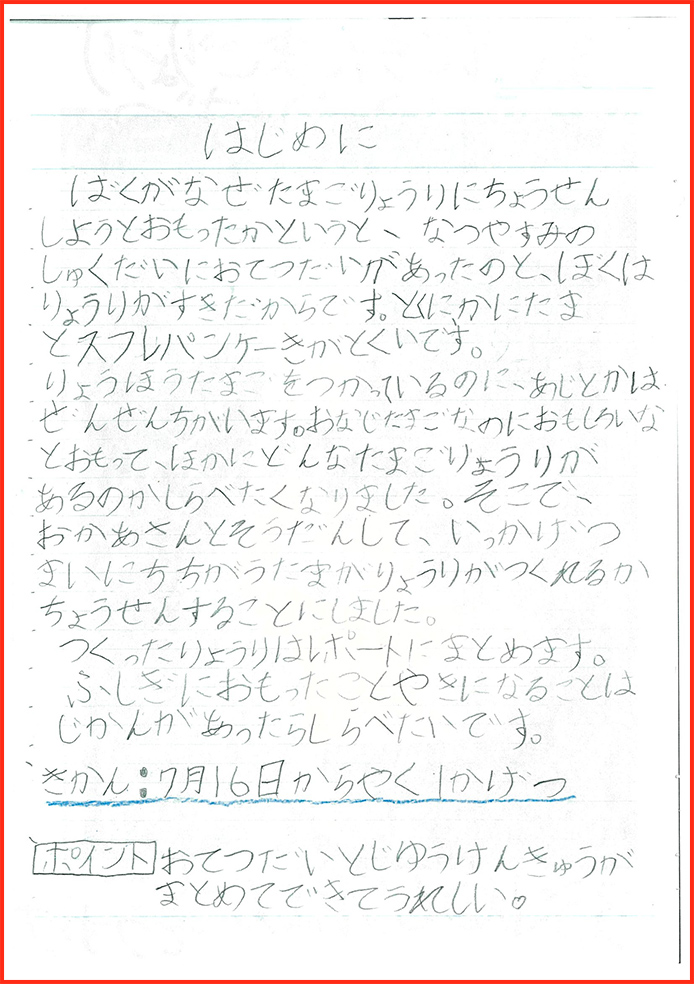 はじめに
ぼくがなぜたまごりょうりにちょうせん
しようとおもったかというと、なつやすみの
しゅくだいにおてつだいがあったのと、ぼくは
りょうりがすきだからです。とくにかにたま
とスフレパンケーきがとくいです。
りょうほうたまごをつかっているのに、あじとかは
ぜんぜんちがいます。おなじたまごなのにおもしろいな
とおもって、ほかにどんなたまごりょうりが
あるのかしらべたくなりました。そこで、
おかあさんとそうだんして、いっかげつ
まいにちちがうたまがりょうりがつくれるか
ちょうせんすることにしました。
つくったりょうりはレポートにまとめます。
ふしぎにおもったことやきになることは
じかんがあったらしらべたいです。
きかん:7月16日からやく1かげつ
ポイント おてつだいとじゆうけんきゅうが
まとめてできてうれしい。